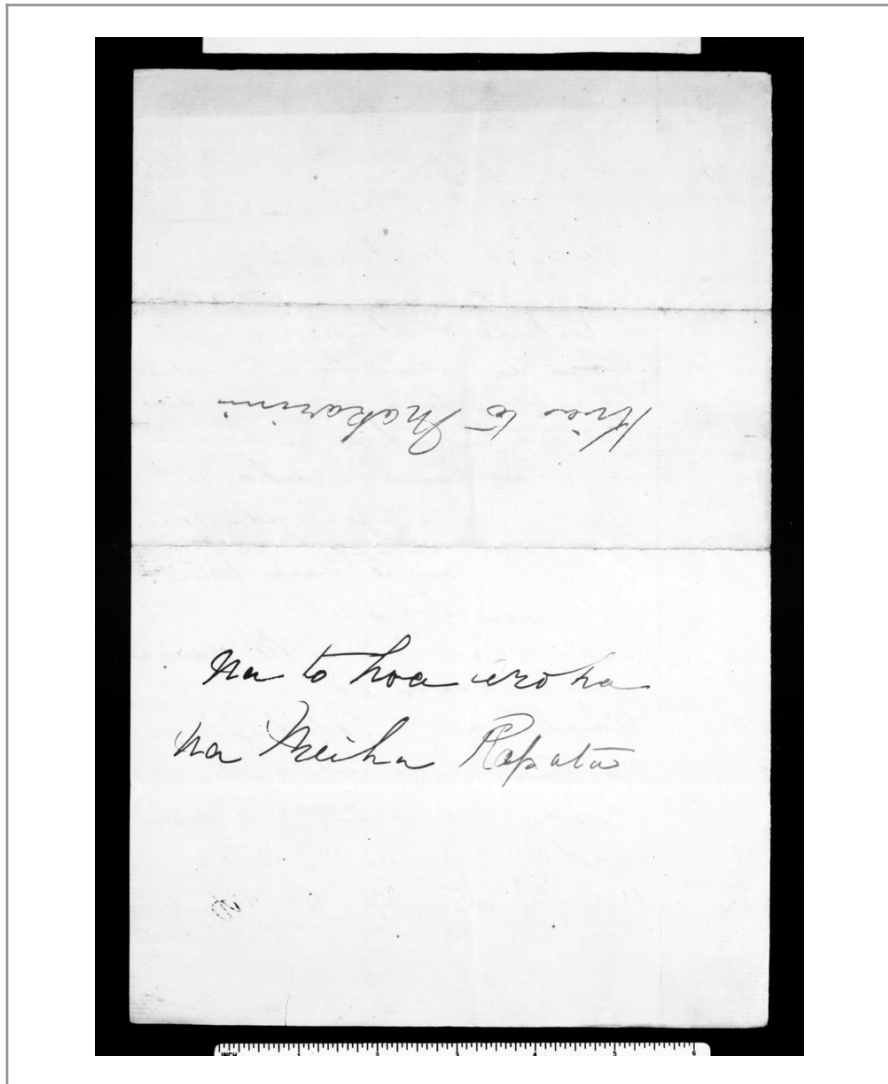 Kia te Makarini
Na to hoa aroha
na Meiha Ropata